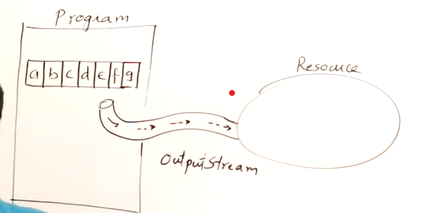 Program
a b c d e f g
Resource
OutputStream